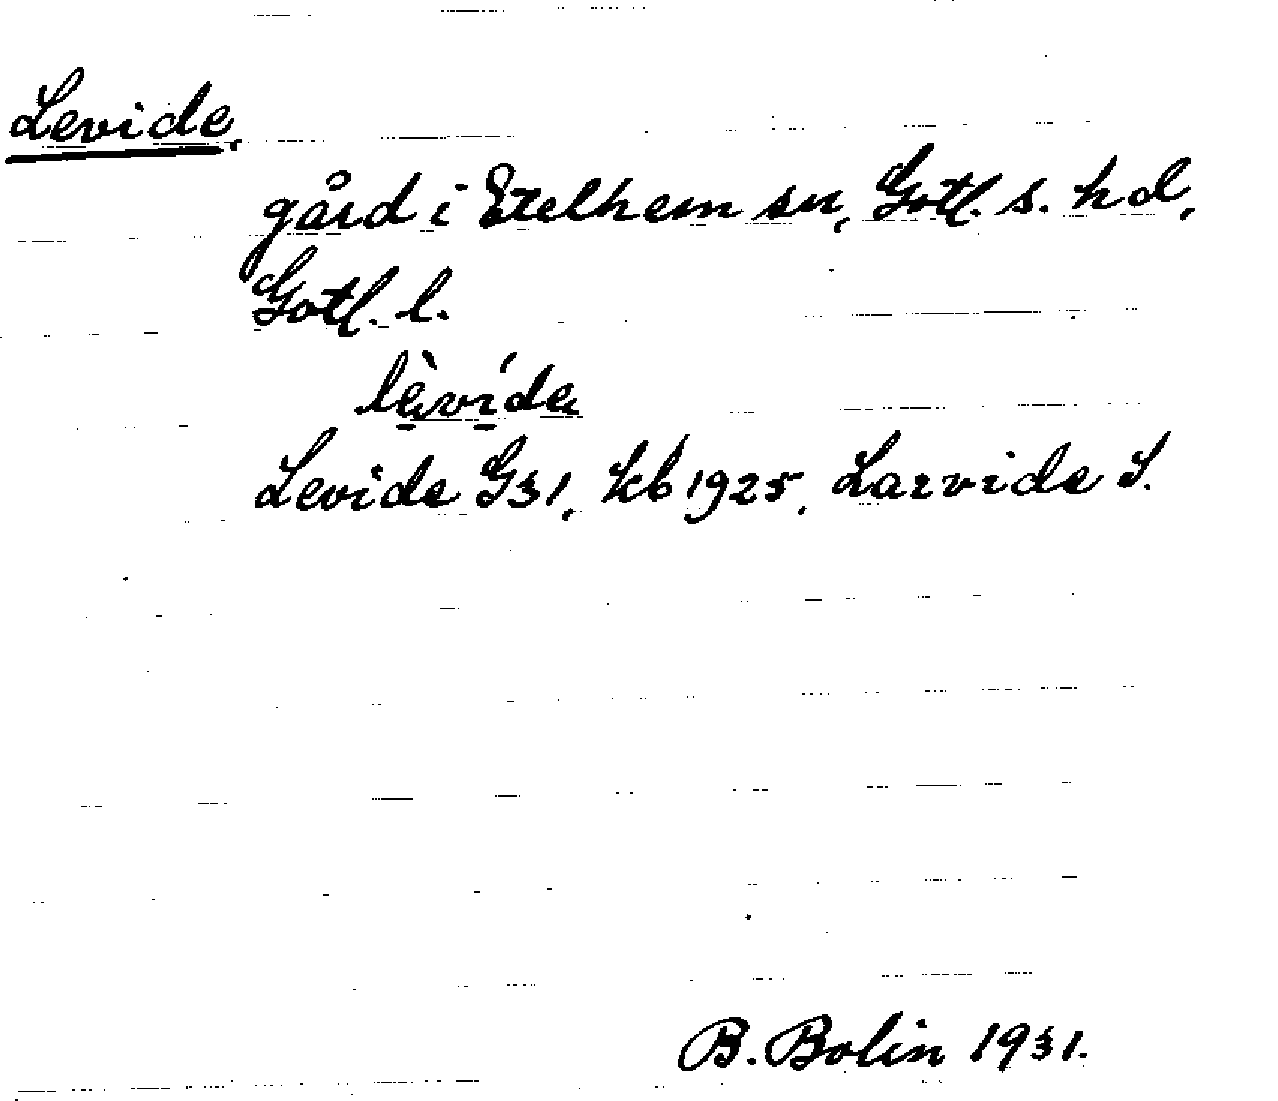 Levide,
gård i Etelhem sn, Gotl. s. hd,
Gotl. l.
lèvíde
Levide G31, kb 1925, Larvide S.
B. Bolin 1931.